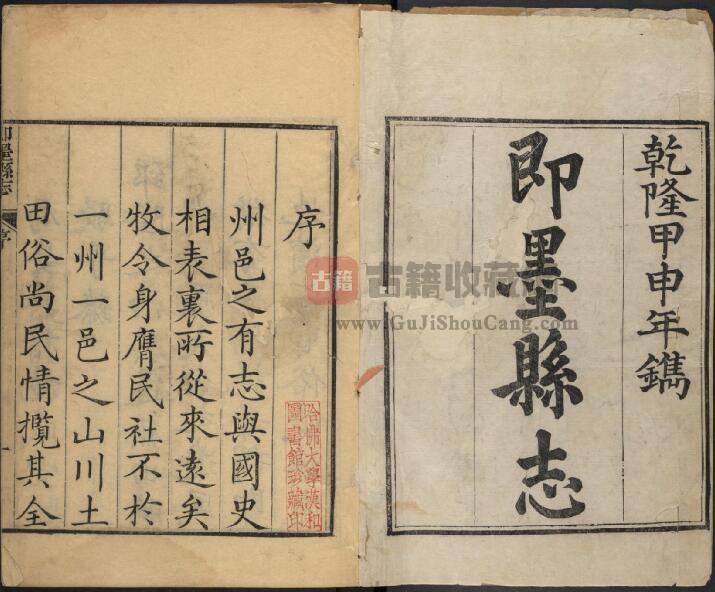 乾隆甲申年鐫
即墨縣志
序
州邑之有志與國史
相表裏所從來遠矣
牧令身膺民社不於
一州一邑之山川土
田俗尚民情攬其全
即墨縣志
序
一
哈佛大學漢和
圖書館珍藏印
古籍
古籍收藏
www.GuJiShouCang.com